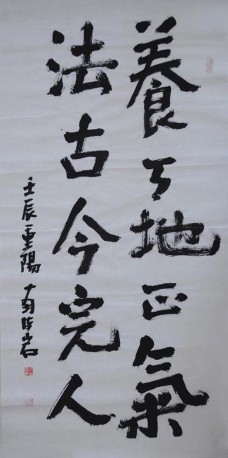 養天地正氣
法古今完人
壬辰重陽